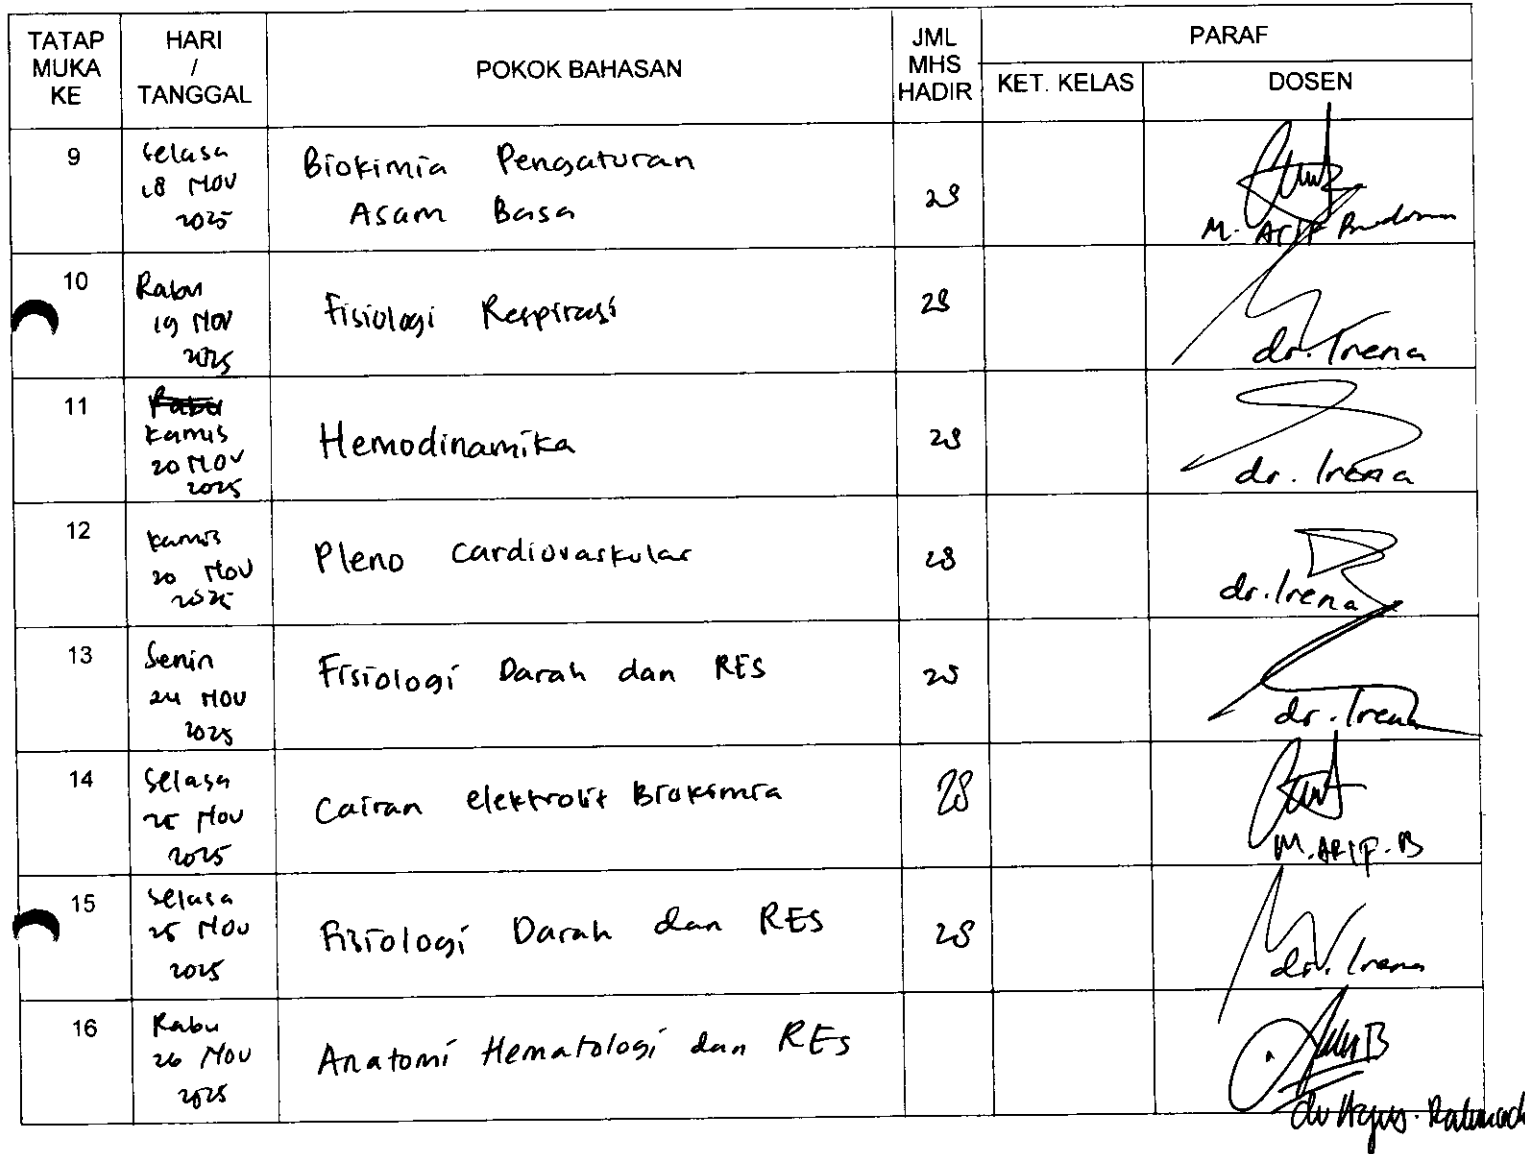 TATAP MUKA KE
HARI / TANGGAL
POKOK BAHASAN
JML MHS HADIR
PARAF
KET. KELAS
DOSEN
9
Selasa
18 Nov
2025
Biokimia Pengaturan
Asam Basa
28
M. Arif
10
Rabu
19 Nov
2025
Fisiologi Respirasi
28
dr. Irena
11
Kamis
20 Nov
2025
Hemodinamika
28
dr. Irena
12
Kamis
20 Nov
2025
Pleno Cardiovaskular
28
dr. Irena
13
Senin
24 Nov
2025
Fisiologi Darah dan RES
28
dr. Irena
14
Selasa
25 Nov
2025
Cairan elektrolit Biokimia
28
M. ARIF. B
15
Selasa
25 Nov
2025
Fisiologi Darah dan RES
28
dr. Irena
16
Rabu
26 Nov
2025
Anatomi Hematologi dan RES
dr Agus